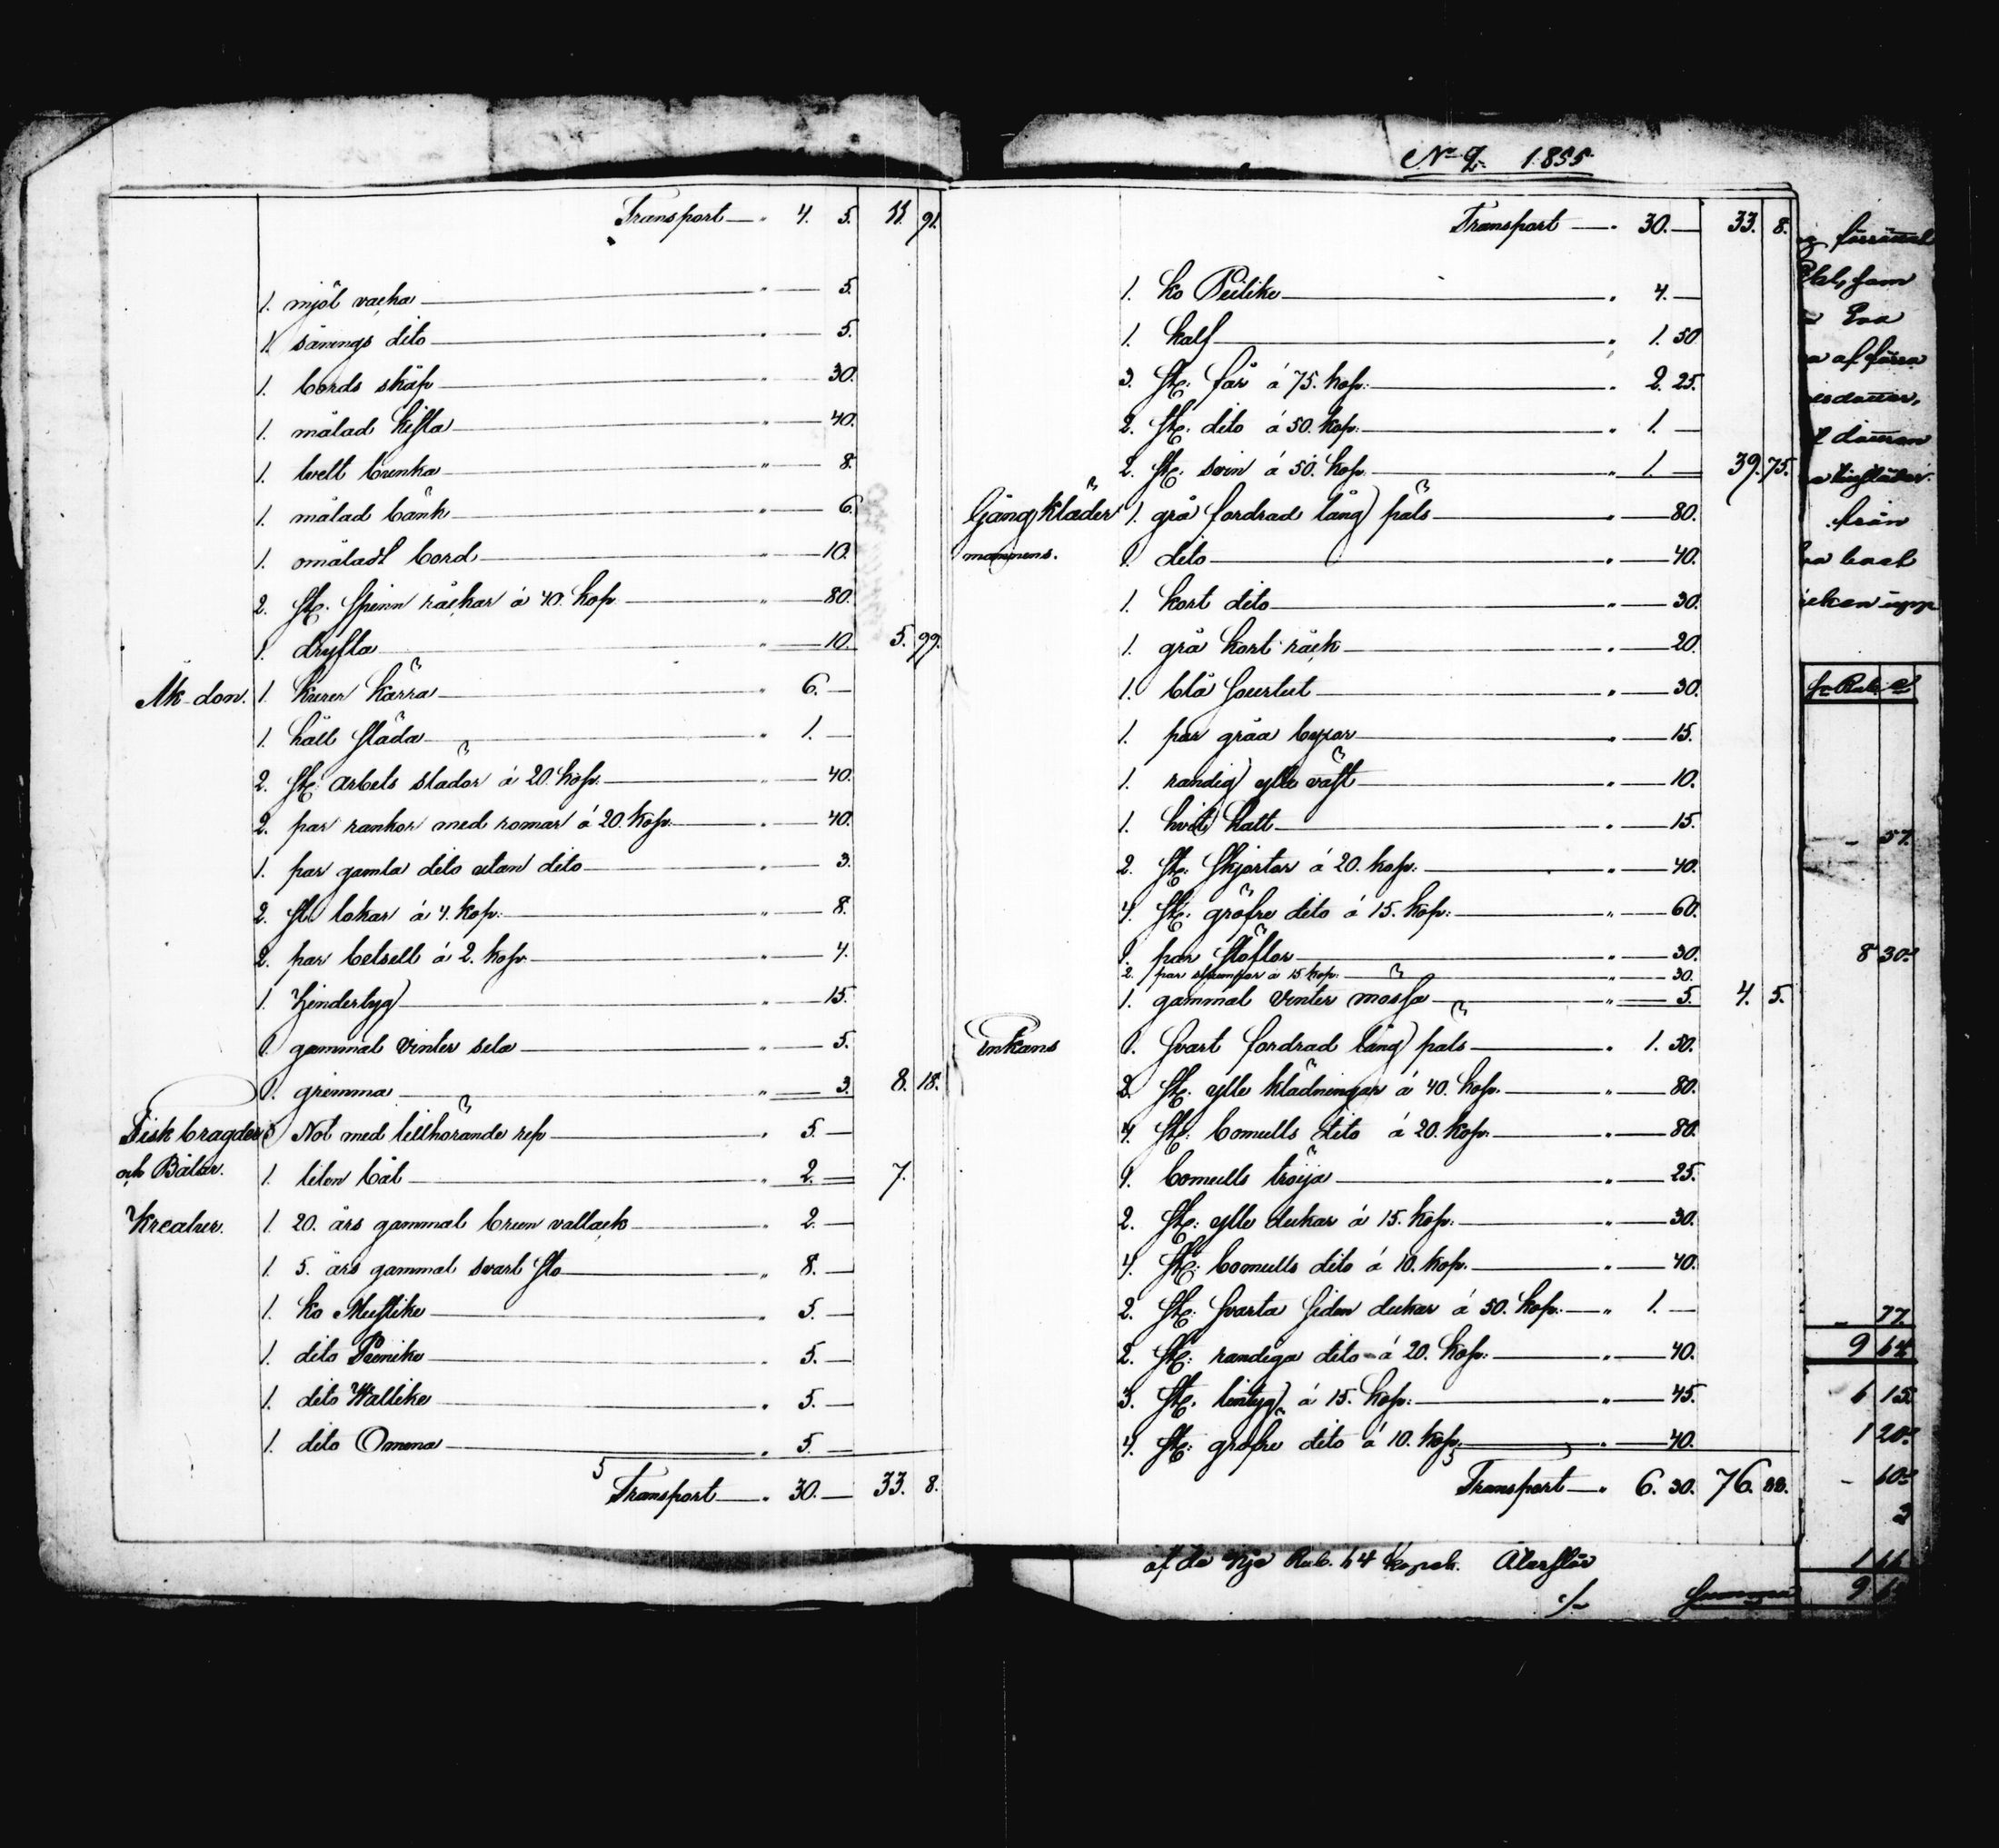 Transport — " 4. 5. 11. 91.
1. mjöl vacka — " — 5.
1. sånings dito — " — 5.
1. bords skåp — " — 30.
1. målad kista — " — 40.
1. tvett bunka — " — 8.
1. målad bänk — " — 6.
1. omåladt bord — " — 10.
2. st: spinn råckar á 40. kop — " — 80.
1. dryfta — " — 10. 5. 99.
Åk-don. 1. kärra — " 6. —
1. håll släda — " 1. —
2. st: arbets slädor á 20. kop. — " — 40.
2. par rankor med romar á 20. kop. — " — 40.
1. par gamla dito utan dito — " — 3.
2. st: lokar á 4. kop: — " — 8.
2. par betsell á 2. kop. — " — 4.
1. hindertyg — " — 15.
1. gammal vinter sela — " — 5.
1. grimma — " — 3. 8. 18.
Fisk bragder 1. Not med tillhörande rep — " 5. —
och Båtar. 1. liten båt — " 2. — 7.
Kreatur. 1. 20. års gammal brun vallack — " 2. —
1. 5. års gammal svart sto — " 8. —
1. ko Mustike — " 5. —
1. dito Punike — " 5. —
1. dito Wallike — " 5. —
1. dito Omena — " 5. —
Transport — " 30. — 33. 8.
No 2. 1855.
Transport — " 30. — 33. 8.
1. ko Peilike — " 4. —
1. kalf — " 1. 50
3. st: får á 75. kop: — " 2. 25.
2. st: dito á 50. kop: — " 1. —
2. st: svin á 50. kop. — " 1. — 39. 75.
Gång kläder 1. grå fordrad lång päls — " — 80.
mannens. 1. dito — " — 40.
1. kort dito — " — 30.
1. grå kort råck — " — 20.
1. blå — " — 30.
1. par gråa byxor — " — 15.
1. randig ylle väst — " — 10.
1. hvit hatt — " — 15.
2. st: skjortor á 20. kop: — " — 40.
4. st: gröfre dito á 15. kop: — " — 60.
1. par stöflor — " — 30.
2. par strumpor á 15 kop: — " — 30.
1. gammal vinter mössa — " — 5. 4. 5.
Enkans 1. svart fordrad lång päls — " 1. 30.
2. st: ylle klädningar á 40. kop. — " — 80.
4. st: bomulls dito á 20. kop: — " — 80.
1. bomulls tröija — " — 25.
2. st: ylle dukar á 15. kop: — " — 30.
4. st: bomulls dito á 10. kop. — " — 40.
2. st: svarta siden dukar á 50. kop: — " 1. —
2. st: randiga dito á 20. kop: — " — 40.
3. st: lintyg á 15. kop: — " — 45.
4. st: gröfre dito á 10. kop. — " — 40.
Transport — " 6. 30. 76. 88.
af de Nije Rub. 64 kopek. Återstår
./. Summa
som
Eva
af förra
från
57.
8 30
77.
9 64
6 15
1 20
60
2
1 66
9